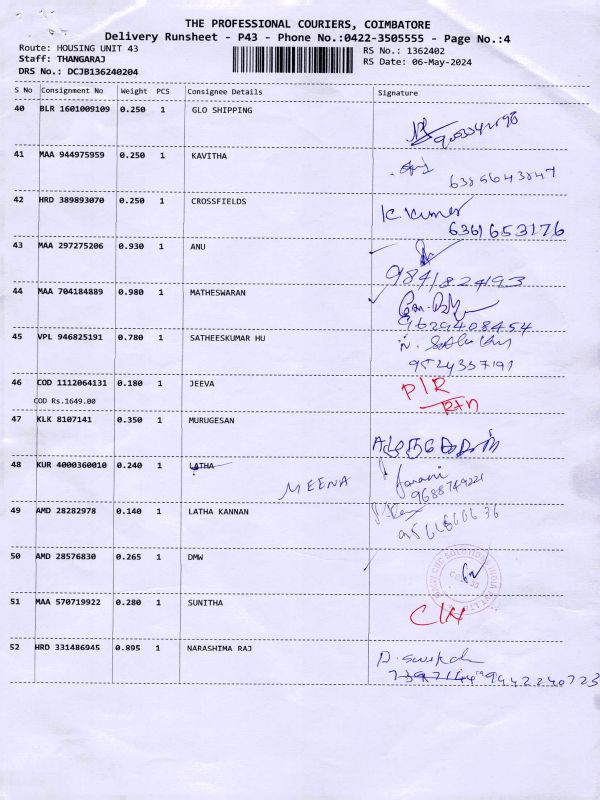 THE PROFESSIONAL COURIERS, COIMBATORE
Delivery Runsheet - P43 - Phone No.:0422-3505555 - Page No.:4
Route: HOUSING UNIT 43 RS No.: 1362402
Staff: THANGARAJ RS Date: 06-May-2024
DRS No.: DCJB136240204
S No Consignment No Weight PCS Consignee Details Signature
40 BLR 1601009109 0.250 1 GLO SHIPPING
41 MAA 944975959 0.250 1 KAVITHA
6385643847
42 HRD 389893070 0.250 1 CROSSFIELDS K. Kumar
6361653176
43 MAA 297275206 0.930 1 ANU
9841824193
44 MAA 704184889 0.980 1 MATHESWARAN
9629408454
45 VPL 946825191 0.780 1 SATHEESKUMAR HU
9524357191
46 COD 1112064131 0.180 1 JEEVA P/R
COD Rs.1649.00 RTN
47 KLK 8107141 0.350 1 MURUGESAN
48 KUR 4000360010 0.240 1 LATHA
MEENA
9688749221
49 AMD 28282978 0.140 1 LATHA KANNAN
50 AMD 28576830 0.265 1 DMW
51 MAA 570719922 0.280 1 SUNITHA
52 HRD 331486945 0.895 1 NARASHIMA RAJ
9442240723